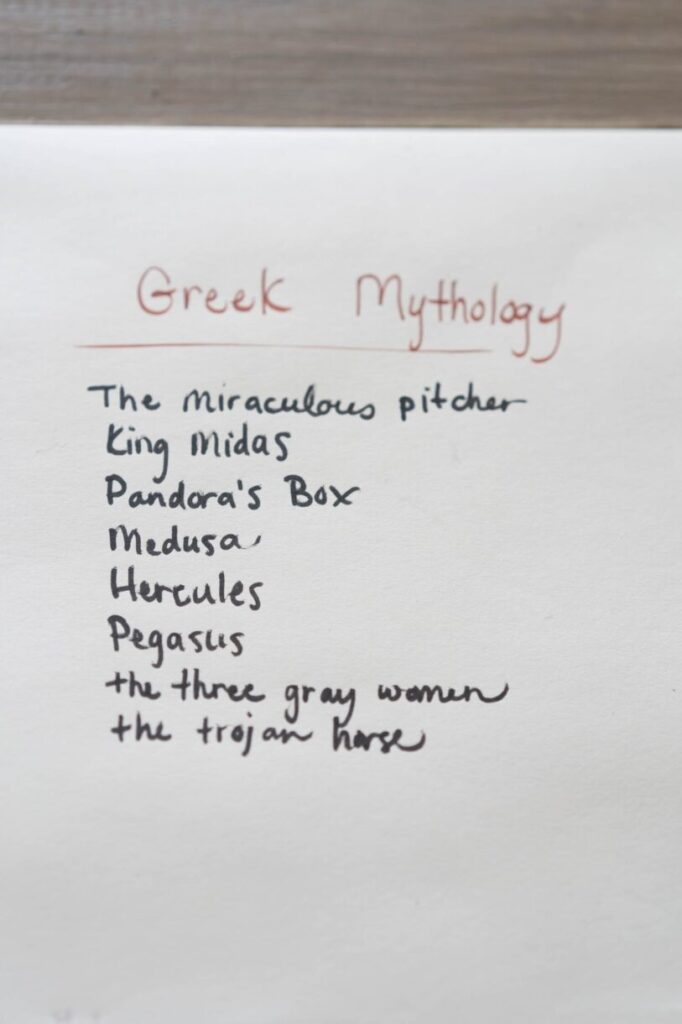 Greek Mythology
The miraculous pitcher
King Midas
Pandora's Box
Medusa
Hercules
Pegasus
the three gray women
the trojan horse